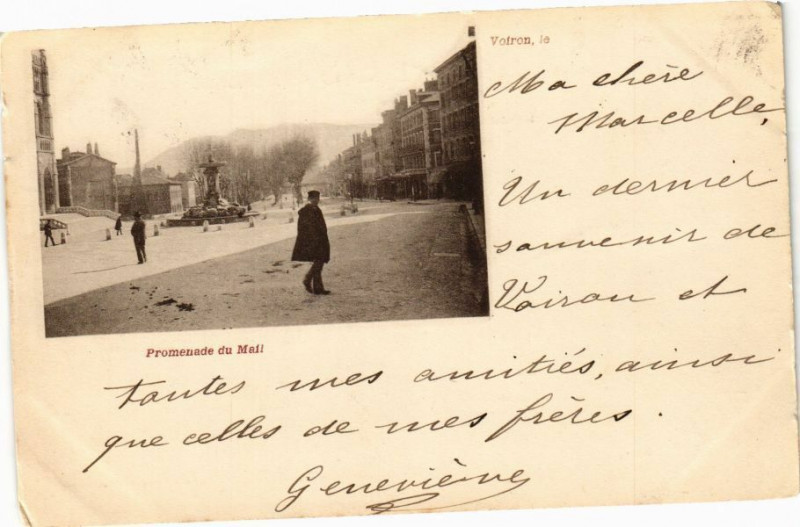 Voiron, le
Ma chère
Marcelle,
Un dernier
souvenir de
Voiron et
Promenade du Mail
toutes mes amitiés, ainsi
que celles de mes frères.
Geneviève